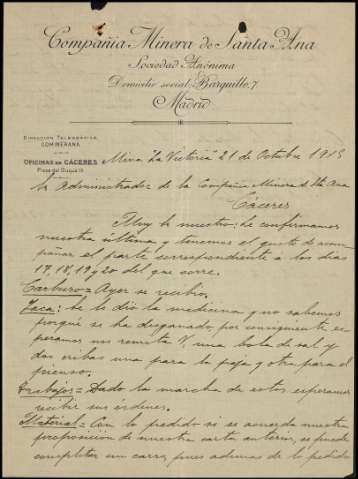 Compañia Minera de Santa Ana
Sociedad Anónima
Domicilio social: Barquillo, 7
Madrid
DIRECCIÓN TELEGRÁFICA,
COMINERANA
OFICINAS EN CÁCERES
Plaza del Duque
Mina La Victoria 21 de Octubre 1915
Sr Administrador de la Compañia Minera de Sta Ana
Cáceres
Muy Sr nuestro: Le confirmamos
nuestra última y tenemos el gusto de acom-
pañar el parte correspondiente á los dias
17, 18, 19 y 20 del que corre.
Carburo = Ayer se recibio.
Jaca: Se le dio la medicina y no sabemos
porqué se ha desganado, por consiguiente es-
peramos nos remita V, una bola de sal y
dos cribas una para la paja y otra para el
pienso.
Trabajos = Dado la marcha de estos esperamos
recibir sus órdenes.
Material = Con lo pedido si se acuerda nuestra
proposición de nuestra carta anterior, se puede
completar un carro, pues además de lo pedido